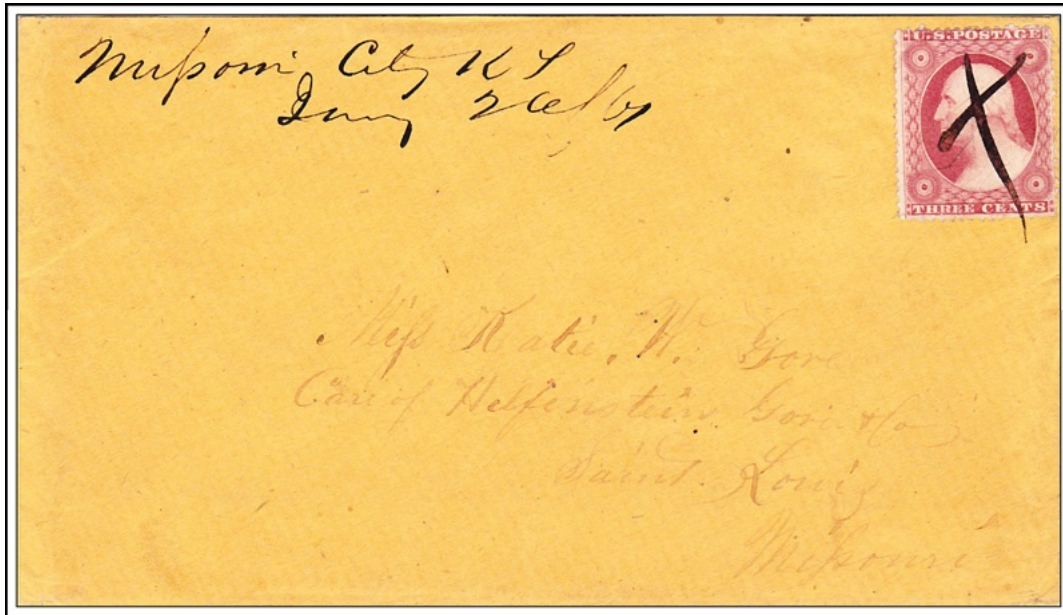 Missouri City K T
Jany 26/61
U.S. POSTAGE
THREE CENTS
Miss Katie. W. Gore
Care of Helfenstein Gore & Co
Saint. Louis
Missouri